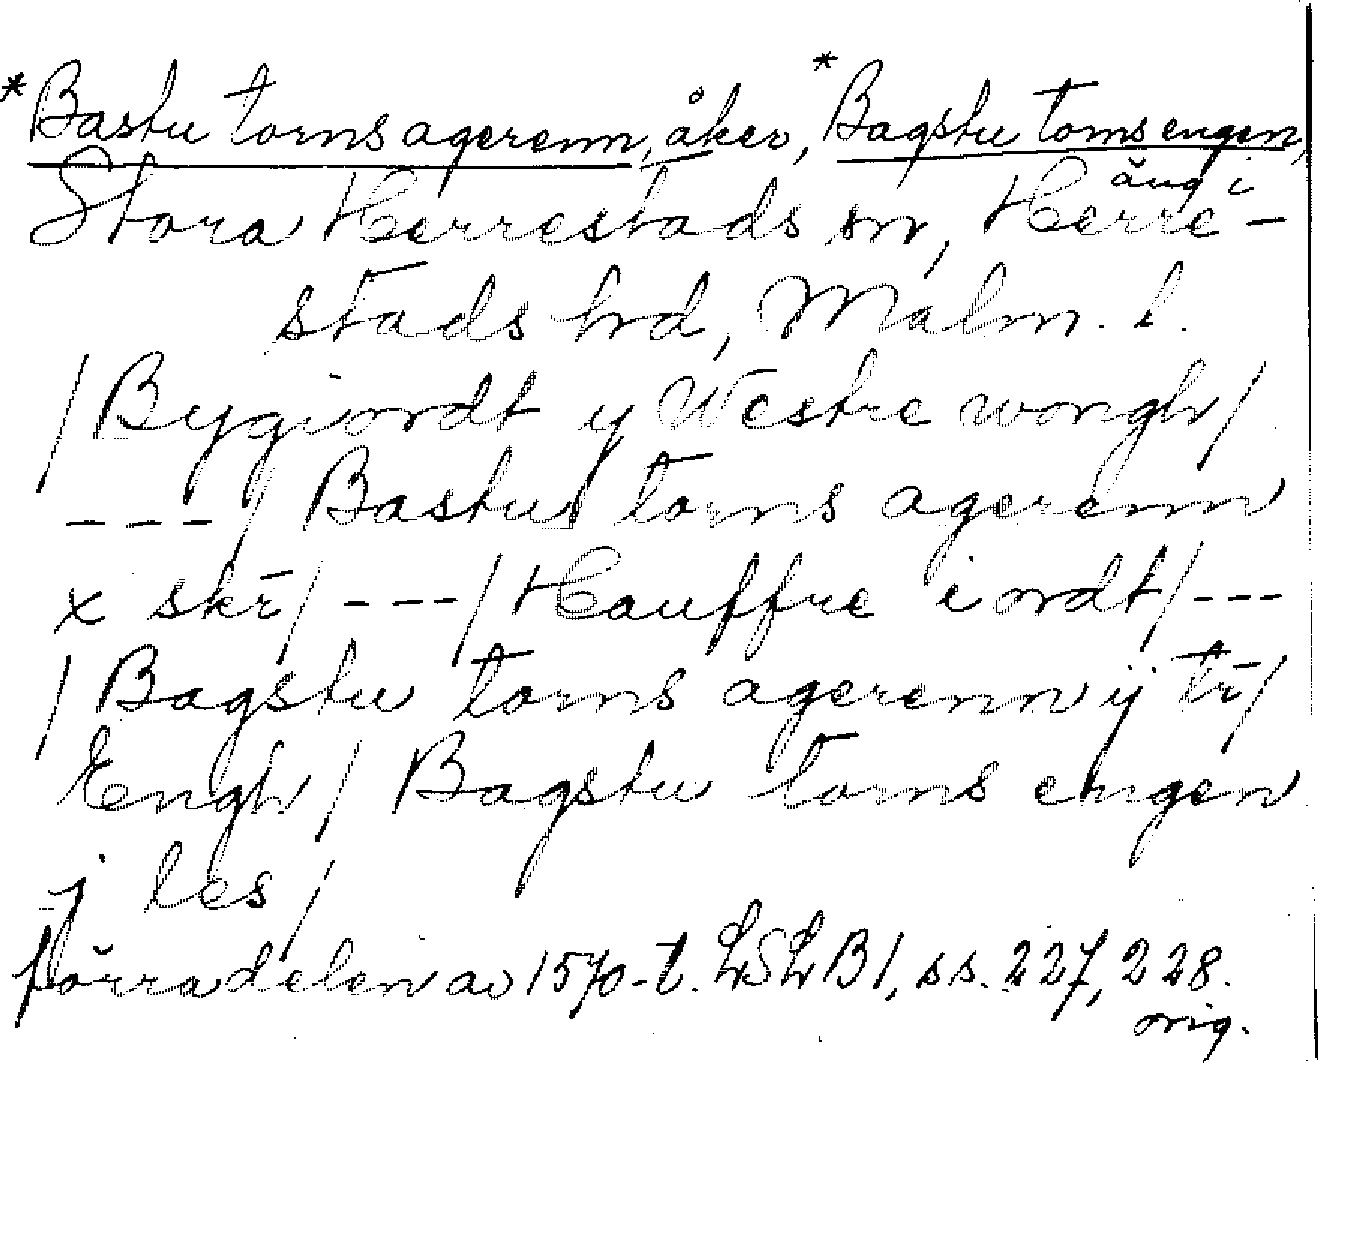 *Bastu torns agerenn, åker, *Bagstu torns engen,
äng i
Stora Herrestads sn, Herre-
stads hrd, Malm. l.
/Bygiordt y Westre wongh/
---/ Bastu torns agerenn
x skr̄/ ---/ Hauffre iordt/ ---
/ Bagstu torns agerenn ij tr̄/
Engh/ Bagstu torns engen
j les/
förra delen av 1570-t. LSLB1, ss. 227, 228.
orig.